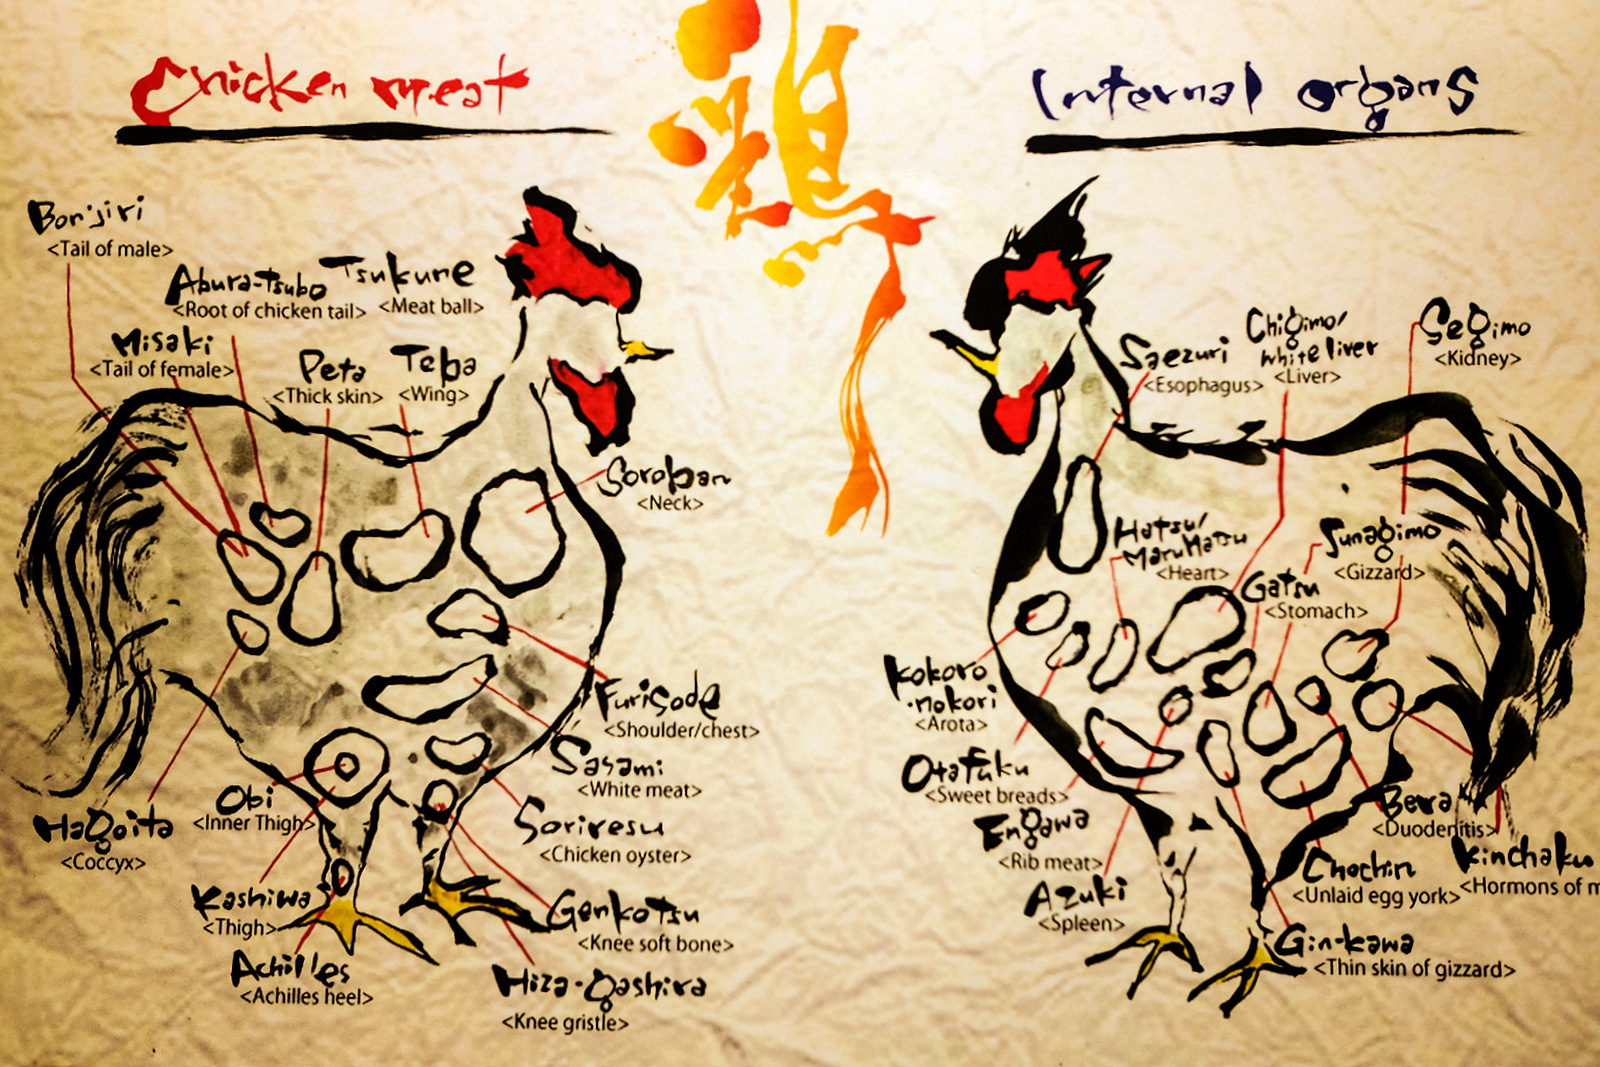 Chicken meat
鶏
Internal organs
Bonjiri
<Tail of male>
Abura-Tsubo
<Root of chicken tail>
Tsukune
<Meat ball>
Misaki
<Tail of female>
Peta
<Thick skin>
Teba
<Wing>
Soroban
<Neck>
Furisode
<Shoulder/chest>
Sasami
<White meat>
Soriresu
<Chicken oyster>
Genkotsu
<Knee soft bone>
Hiza-gashira
<Knee gristle>
Hagoita
<Coccyx>
Obi
<Inner Thigh>
Kashiwa
<Thigh>
Achilles
<Achilles heel>
Saezuri
<Esophagus>
Chigimo/
white liver
<Liver>
Segimo
<Kidney>
Hatsu/
MaruHatsu
<Heart>
Sunagimo
<Gizzard>
Gatsu
<Stomach>
Kokoro
-nokori
<Arota>
Otafuku
<Sweet breads>
Engawa
<Rib meat>
Azuki
<Spleen>
<Duodenitis>
Kinchaku
<Hormons of m
Chochin
<Unlaid egg york>
Gin-kawa
<Thin skin of gizzard>